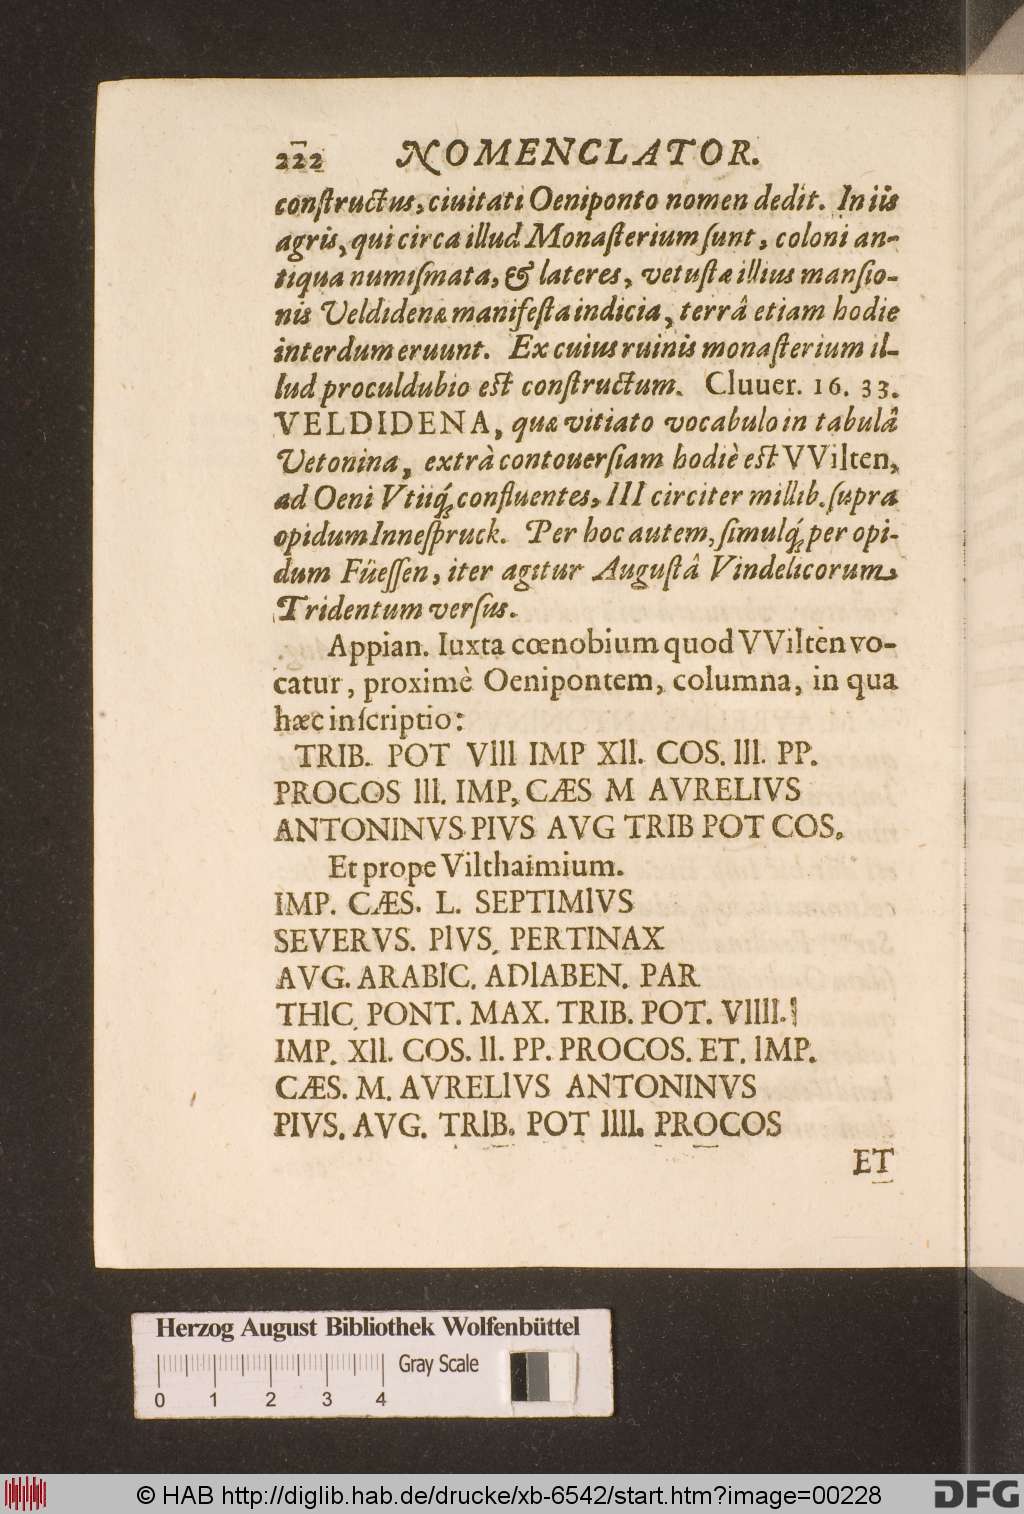 222 NOMENCLATOR.
conſtructus, ciuitati Oeniponto nomen dedit. In iis
agris, qui circa illud Monaſterium ſunt, coloni an-
tiqua numiſmata, & lateres, vetuſtæ illius manſio-
nis Veldidenæ manifeſta indicia, terrâ etiam hodie
interdum eruunt. Ex cuius ruinis monaſterium il-
lud proculdubio eſt conſtructum. Cluuer. 16. 33.
VELDIDENA, quæ vitiato vocabulo in tabulâ
Vetonina, extrà contouerſiam hodiè eſt VVilten,
ad Oeni Vtiiq́; confluentes, III circiter millib. ſupra
opidum Inneſpruck. Per hoc autem, ſimulq́; per opi-
dum Füeſſen, iter agitur Auguſtâ Vindelicorum
Tridentum verſus.
Appian. Iuxta cœnobium quod VVilten vo-
catur, proximè Oenipontem, columna, in qua
hæc inſcriptio:
TRIB. POT VIII IMP XII. COS. III. PP.
PROCOS III. IMP, CÆS M AVRELIVS
ANTONINVS PIVS AVG TRIB POT COS.
Et prope Vilthaimium.
IMP. CÆS. L. SEPTIMIVS
SEVERVS. PIVS. PERTINAX
AVG. ARABIC. ADIABEN. PAR
THIC. PONT. MAX. TRIB. POT. VIIII.
IMP. XII. COS. II. PP. PROCOS. ET. IMP.
CÆS. M. AVRELIVS ANTONINVS
PIVS. AVG. TRIB. POT IIII. PROCOS
ET
Herzog August Bibliothek Wolfenbüttel
Gray Scale
0 1 2 3 4
© HAB http://diglib.hab.de/drucke/xb-6542/start.htm?image=00228
DFG